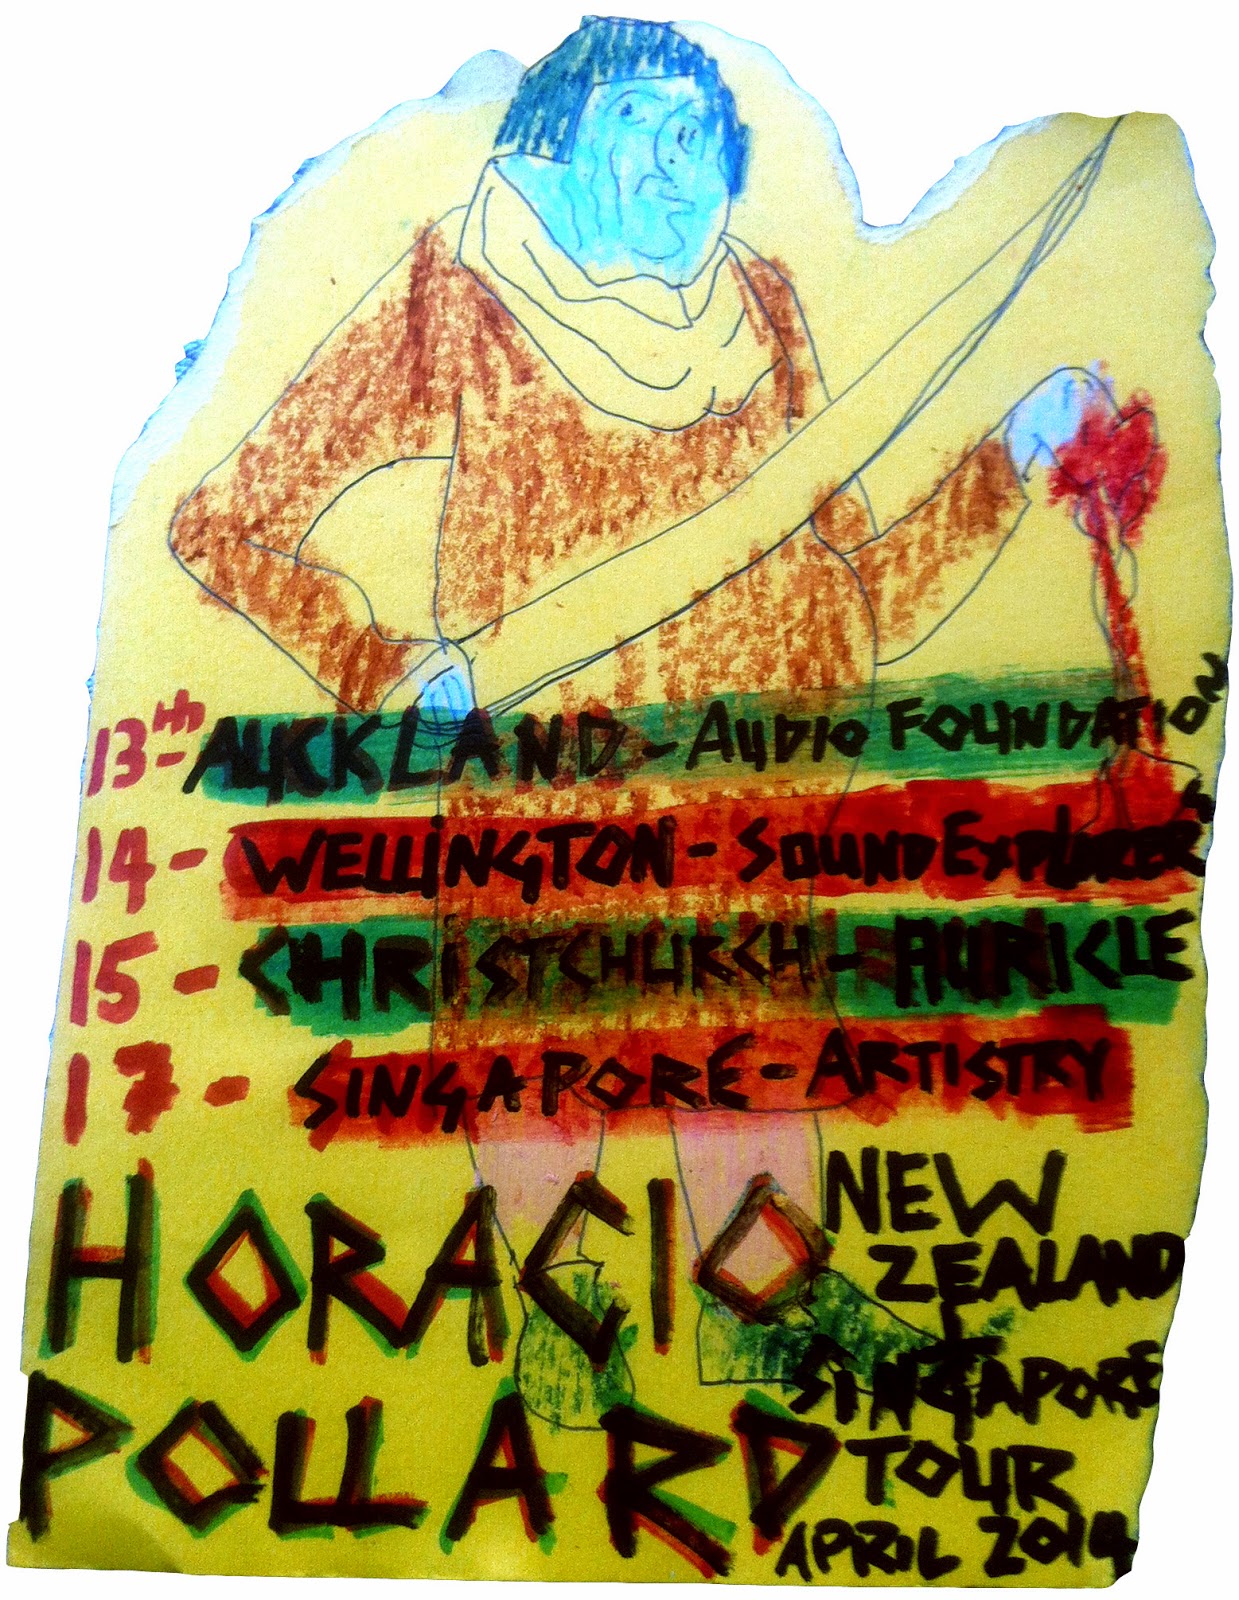 13th- AUCKLAND - AUDIO FOUNDATION
14 - WELLINGTON - SOUND EXPLORERS
15 - CHRISTCHURCH - AURICLE
17 - SINGAPORE - ARTISTRY
HORACIO
POLLARD
NEW
ZEALAND
+
SINGAPORE
TOUR
APRIL 2014